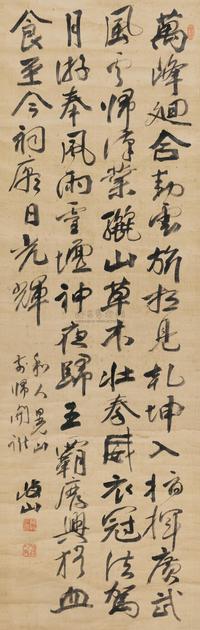 萬峰迴合動雲旂想見乾坤入指揮廣武
風雲歸漢業驪山草木壯秦威衣冠法駕
月游奉風雨靈壇神夜歸王霸廢興猶血
食至今祠廟日光輝
和人晃山
岐山